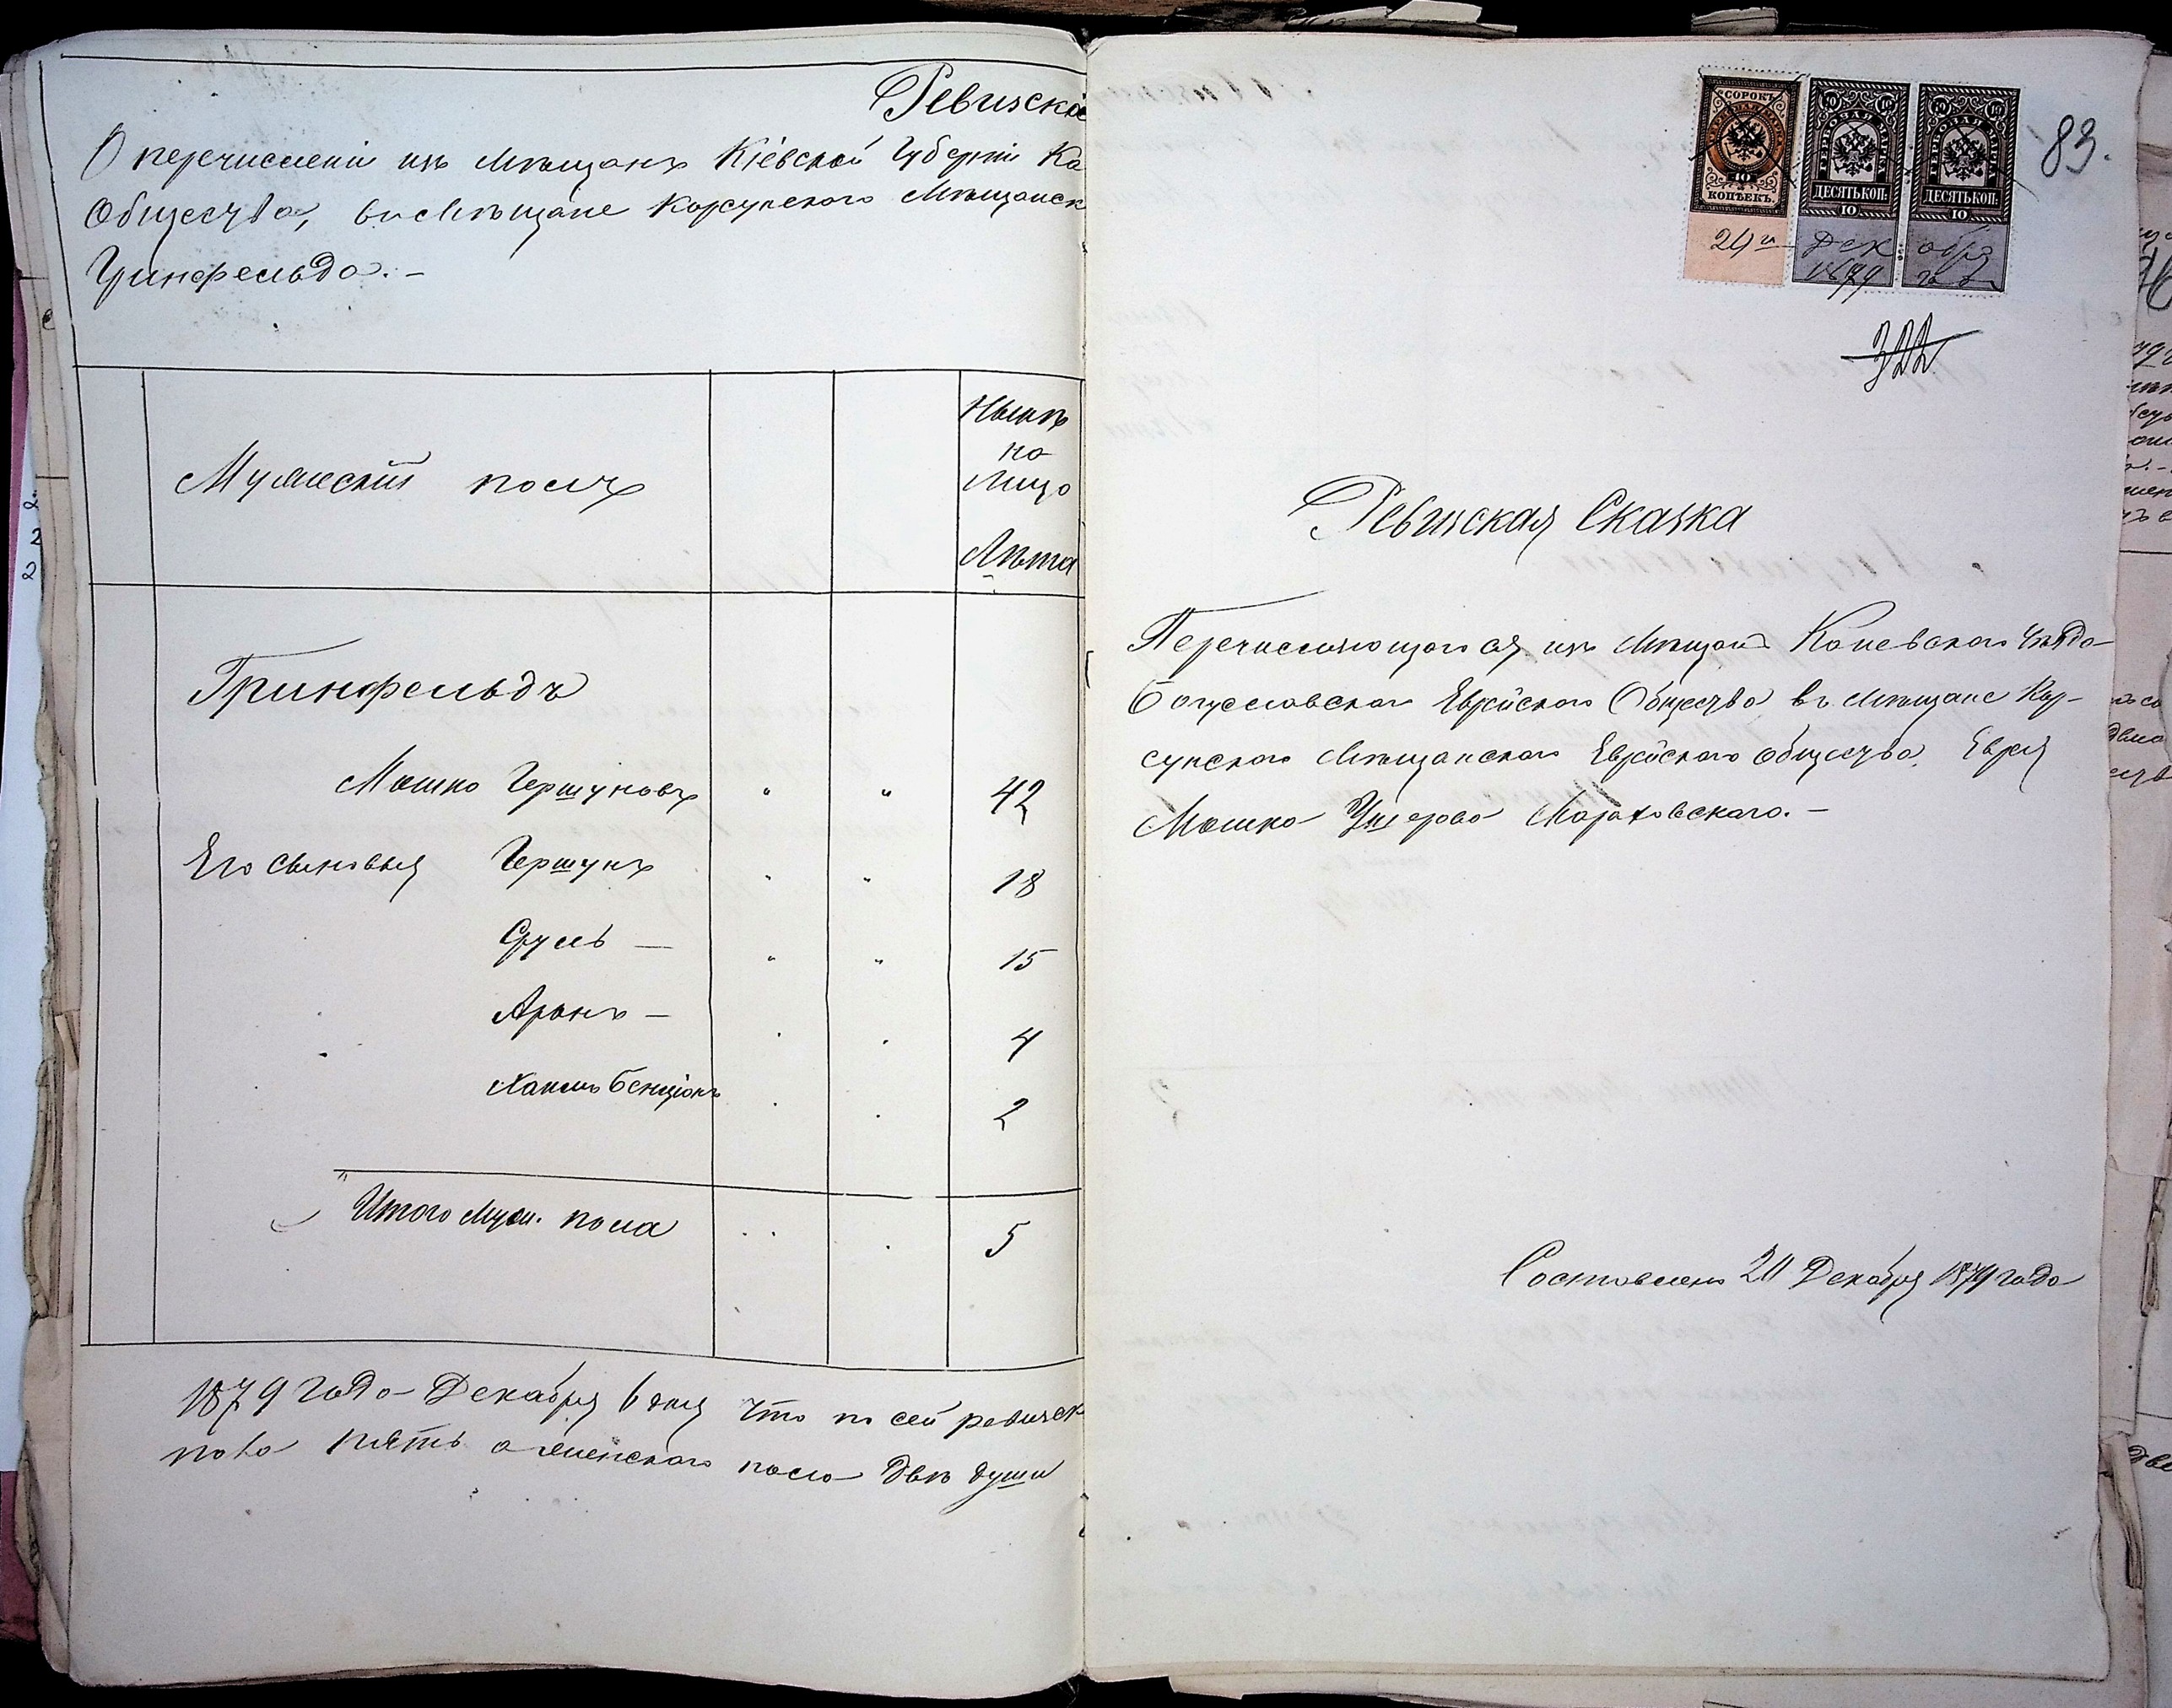 Ревизскіе
О перечисленіи изъ Мѣщанъ Кіевской Губерніи Ка
Общества, въ Мѣщане Корсунского Мѣщанск
Гринфельда. -
Мужескій полъ
Нынѣ
на
Лицо
Лѣта
Гринфельдъ
Мошко Гершуновъ " " 42
Его сыновья Гершунъ " " 18
Сруль — " " 15
Аронъ — 4
Хаимъ Бенціонъ 2
Итого Муж. пола 5
1879 года Декабря 6 дня что по сей ревизск
пола пять а женскаго пола двѣ души
83.
СОРОКЪ
КОПѢЕКЪ.
ГЕРБОВАЯ МАРКА
10 10
ДЕСЯТЬ КОП:
10
ГЕРБОВАЯ МАРКА
10 10
ДЕСЯТЬ КОП:
10
Дек абря
1879 года
322
Ревизская Сказка
Перечисляющагося изъ Мѣщанъ Каневского Уѣзда
Богуславского Еврейского Общества въ Мѣщане Кор-
сунского Мѣщанского Еврейского общества Еврея
Мошка Ушерова Мораховского. —
Составлена 20 Декабря 1879 года